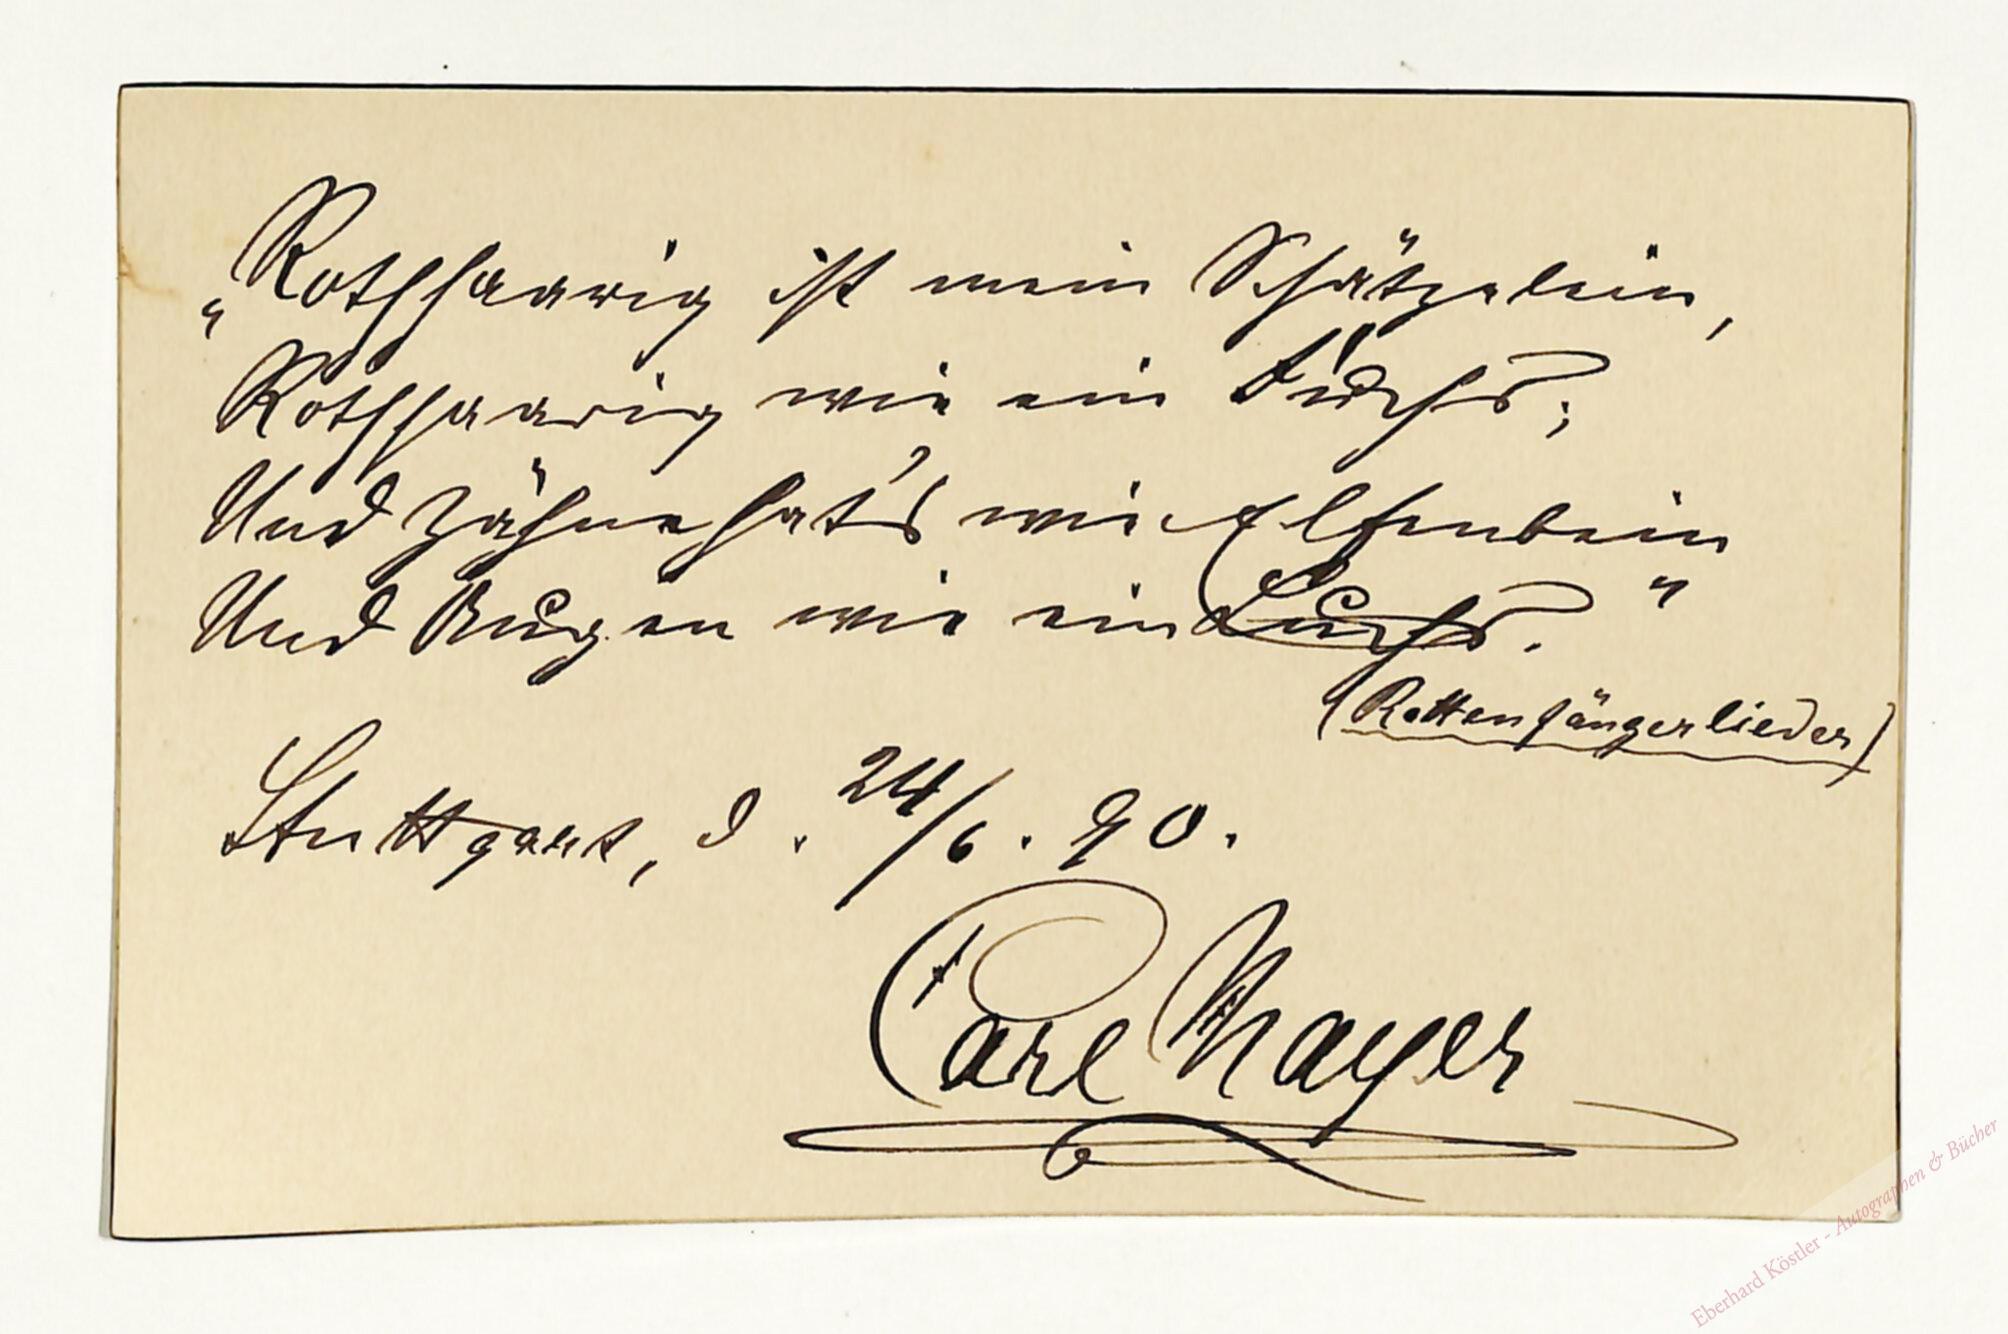 „Rothhaarig ist mein Schätzelein,
Rothhaarig wie ein Fuchs;
Und Zähne hat's wie Elfenbein
Und Augen wie ein Luchs."
(Rattenfängerlieder)
Stuttgart, d. 24/6. 90.
Carl Mayer
Eberhard Köstler - Autographen & Bücher